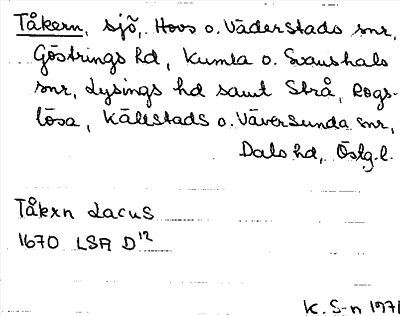 Tåkern, sjö, Hovs o. Väderstads snr,
Göstrings hd, Kumla o. Svanshals
snr, Lysings hd samt Strå, Rogs-
lösa, Källstads o. Väversunda snr,
Dals hd, Östg. l.
Tåkrn Lacus
1670 LSA D¹²
K. S-n 1971